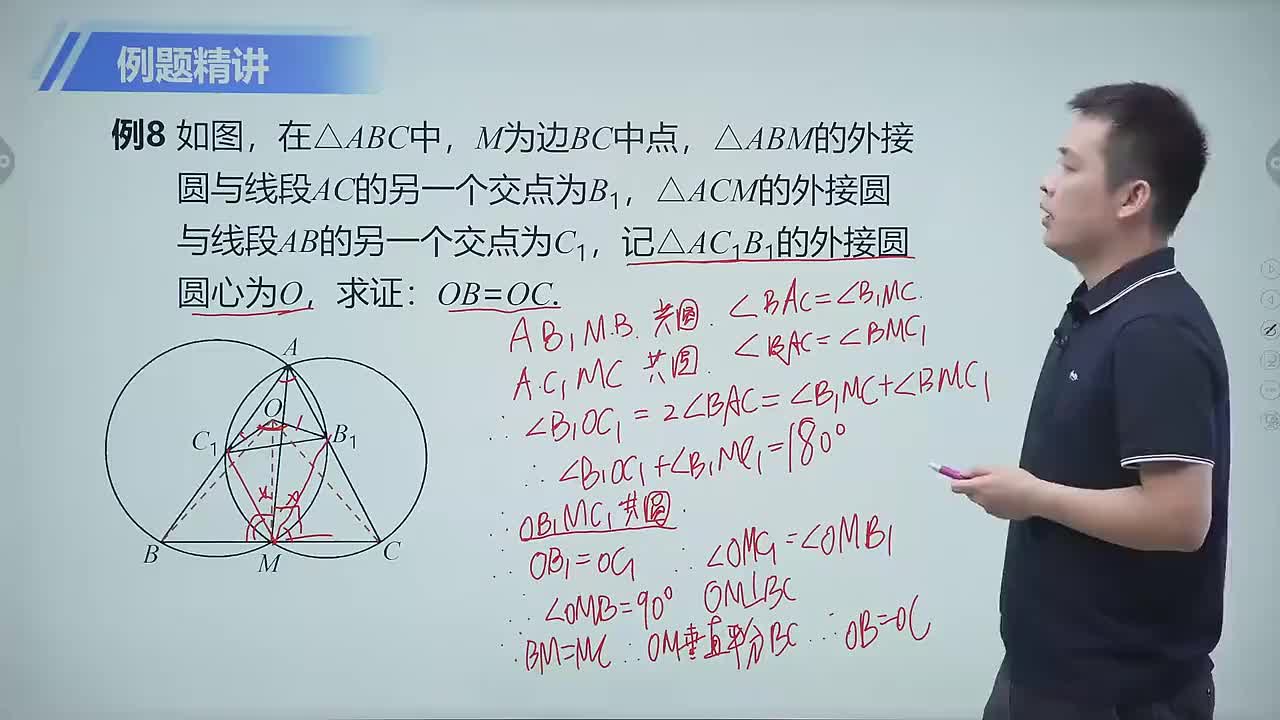 例题精讲
例8 如图，在△ABC中，M为边BC中点，△ABM的外接
圆与线段AC的另一个交点为B₁，△ACM的外接圆
与线段AB的另一个交点为C₁，记△AC₁B₁的外接圆
圆心为O，求证：OB=OC.
A B₁ M.B. 共圆. ∠BAC=∠B₁MC.
A.C₁ MC 共圆. ∠BAC=∠BMC₁
∴ ∠B₁OC₁=2∠BAC=∠B₁MC+∠BMC₁
∴ ∠B₁OC₁+∠B₁MC₁=180°
∴ OB₁MC₁共圆.
∴ OB₁=OC₁ ∴ ∠OMC₁=∠OMB₁
∴ ∠OMB=90° OM⊥BC
∵ BM=MC ∴ OM垂直平分BC ∴ OB=OC
A
O
C₁
B₁
B
M
C